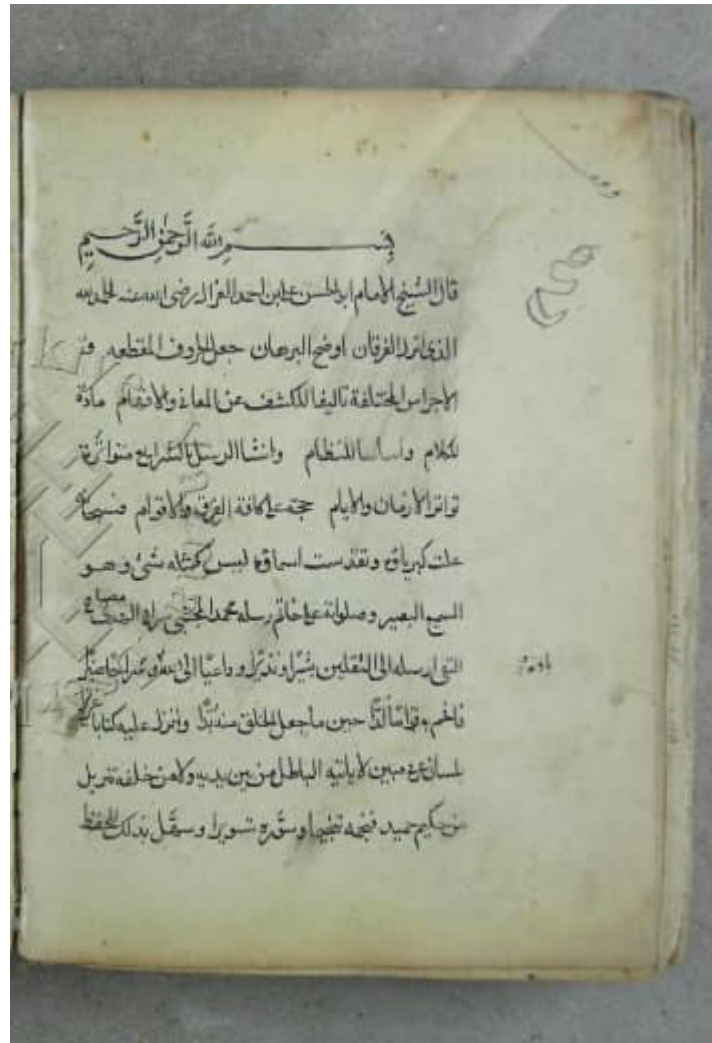 بِسْمِ اللَّهِ الرَّحْمٰنِ الرَّحِيمِ
قال الشيخ الامام ابو الحسن علي بن احمد الغزال رضى الله عنه الحمد لله
الذى انزل الفرقان اوضح البرهان جعل الحروف المقطعه
الاجراس المختلفة تاليفا للكشف عن المعانى والافهام مادّة
للكلام واساسا للنظام وانشا الرسل بالشرايع متواترة
تواتر الازمان والايام حجة على كافة الفرق والاقوام فسبحانه
علت كبرياؤه وتقدست اسماؤه ليس كمثله شئ وهو
السميع البصير وصلواته على خاتم رسله محمد المجتبى
ارسله الى الثقلين بشيرا ونذيرا وداعيًا الى
فافحم به قوامًا لدًّا حين ما جعل الخلق منه بُدًّا وانزل عليه كتابا
بلسان عربى مبين لا ياتيه الباطل من بين يديه ولا من خلفه تنزيل
من حكيم حميد فنجمه تنجيما وسوّره تسويرا وسهّل بذلك للحفظ